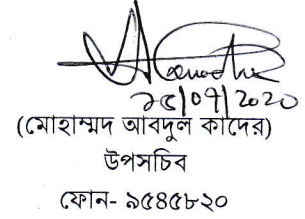 ২৫/০৭/২০২০
(মোহাম্মদ আবদুল কাদের)
উপসচিব
ফোন- ৯৫৪৫৮২০